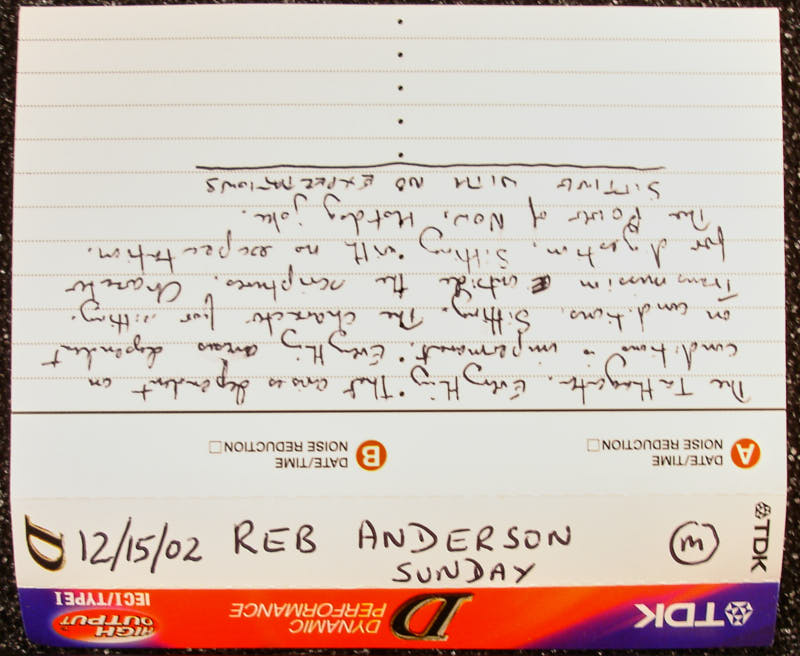 12/15/02 REB ANDERSON M
SUNDAY
TDK
D
TDK D DYNAMIC PERFORMANCE
HIGH OUTPUT
IECI/TYPE I
A DATE/TIME
NOISE REDUCTION
B DATE/TIME
NOISE REDUCTION
The Tathagata. Everything "That arises dependent on
conditions is impermanent". Everything arises dependent
on conditions. Sitting. The character for sitting.
Transmission outside the scriptures. Character
for Sitting with no expectation.
The Power of Now. Hotdog joke.
SITTING WITH NO EXPECTATIONS